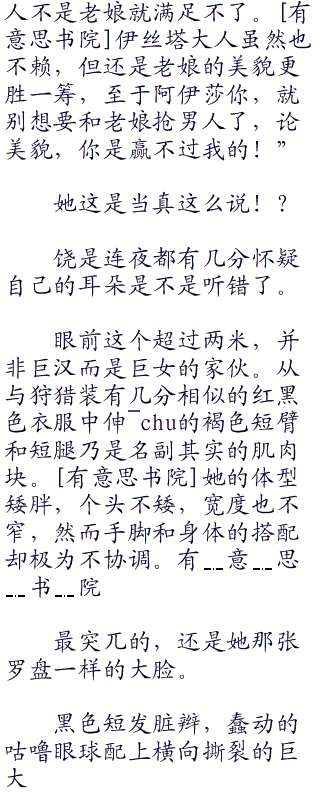 人不是老娘就满足不了。[有
意思书院]伊丝塔大人虽然也
不赖，但还是老娘的美貌更
胜一筹，至于阿伊莎你，就
别想要和老娘抢男人了，论
美貌，你是赢不过我的！”
她这是当真这么说！？
饶是连夜都有几分怀疑
自己的耳朵是不是听错了。
眼前这个超过两米，并
非巨汉而是巨女的家伙。从
与狩猎装有几分相似的红黑
色衣服中伸¯chu的褐色短臂
和短腿乃是名副其实的肌肉
块。[有意思书院]她的体型
矮胖，个头不矮，宽度也不
窄，然而手脚和身体的搭配
却极为不协调。有﹍意﹍思
﹍书﹍院
最突兀的，还是她那张
罗盘一样的大脸。
黑色短发脏辫，蠢动的
咕噜眼球配上横向撕裂的巨
大